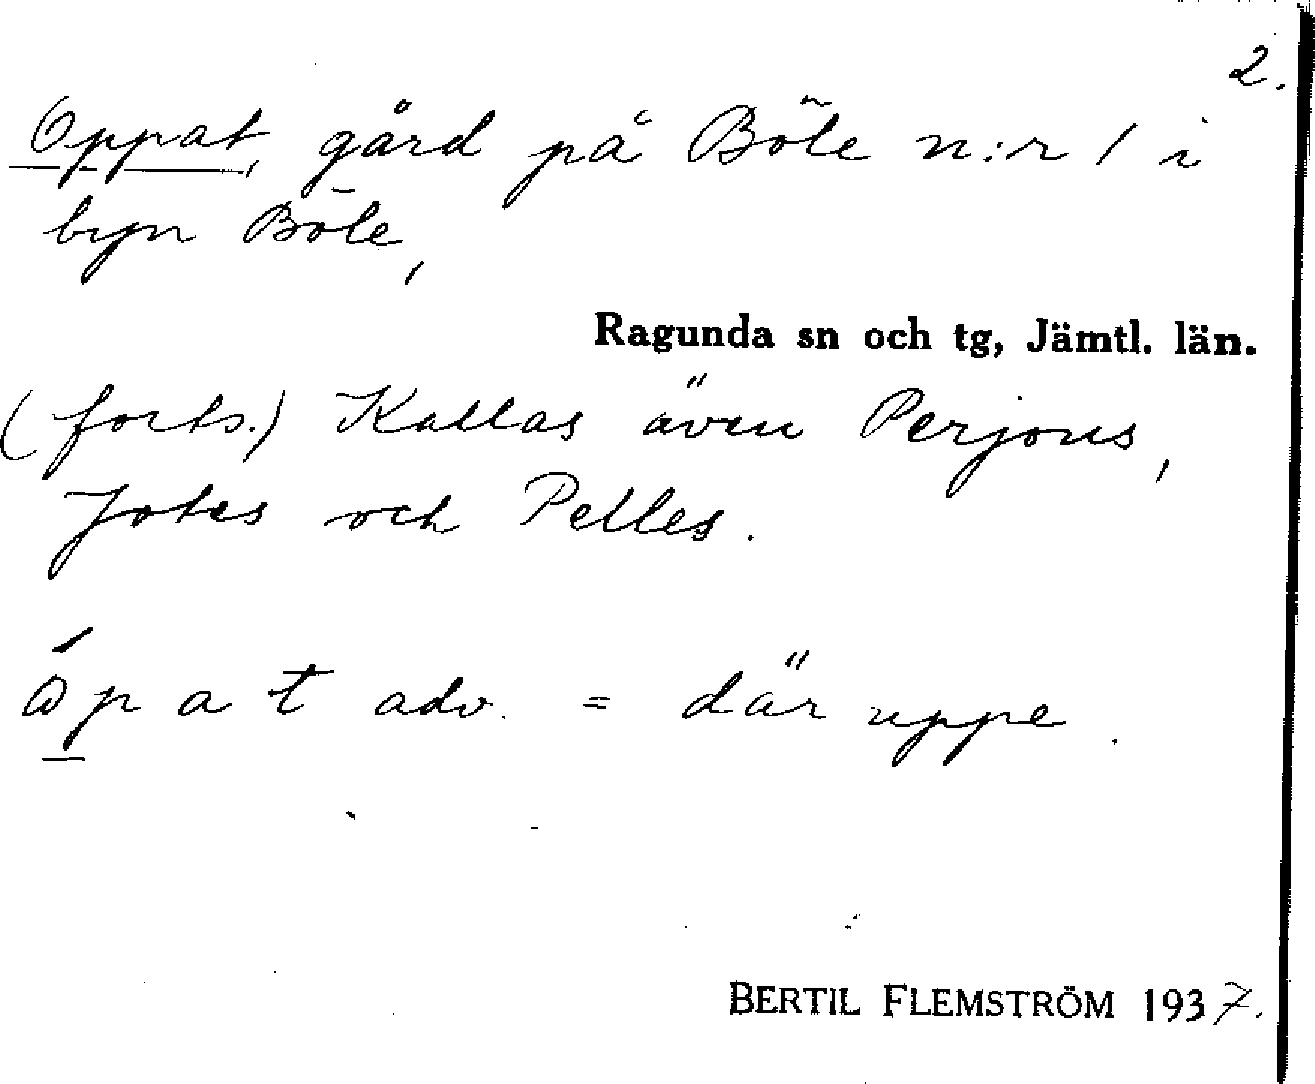 2.
Oppat, gård på Böle n:r 1 i
byn Böle,
Ragunda sn och tg, Jämtl. län.
(forts.) Kallas även Perjons,
Jotes och Pelles.
adv. = där uppe.
BERTIL FLEMSTRÖM 1937.